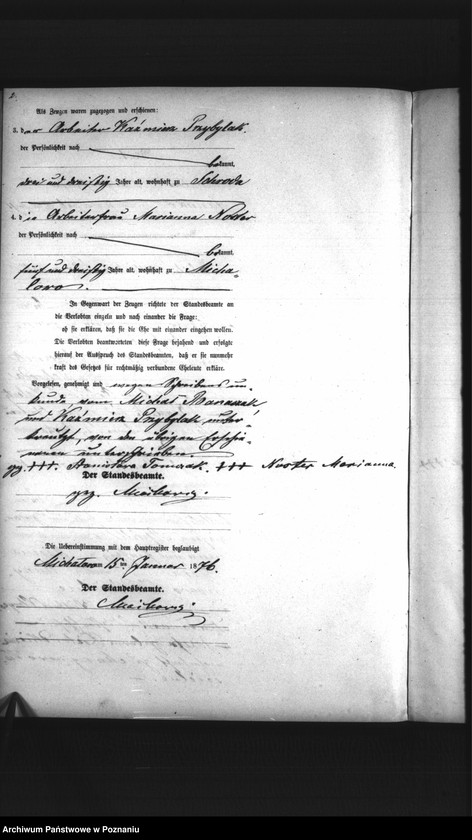 2.
Als Zeugen waren zugezogen und erschienen:
3. der Arbeiter Kaźmierz Przybylak
der Persönlichkeit nach
bekannt,
drei und dreißig Jahre alt, wohnhaft zu Schroda
4. die Arbeiterfrau Marianna Noster
der Persönlichkeit nach
bekannt,
fünf und dreißig Jahre alt, wohnhaft zu Micha-
lowo.
In Gegenwart der Zeugen richtete der Standesbeamte an
die Verlobten einzeln und nach einander die Frage:
ob sie erklären, daß sie die Ehe mit einander eingehen wollen.
Die Verlobten beantworteten diese Frage bejahend und erfolgte
hierauf der Ausspruch des Standesbeamten, daß er sie nunmehr
kraft des Gesetzes für rechtmäßig verbundene Eheleute erkläre.
Vorgelesen, genehmigt und wegen Schreibens un-
kunde vom Michał
und Kaźmierz Przybylak unter-
kreuzt, von den übrigen Erschie-
nenen unterschrieben.
gez. +++. Stanisława Tomczak. +++ Noster Marianna.
Der Standesbeamte.
gez.
Die Uebereinstimmung mit dem Hauptregister beglaubigt
Michałowo am 15 ten Januar 1876.
Der Standesbeamte.
Archiwum Państwowe w Poznaniu